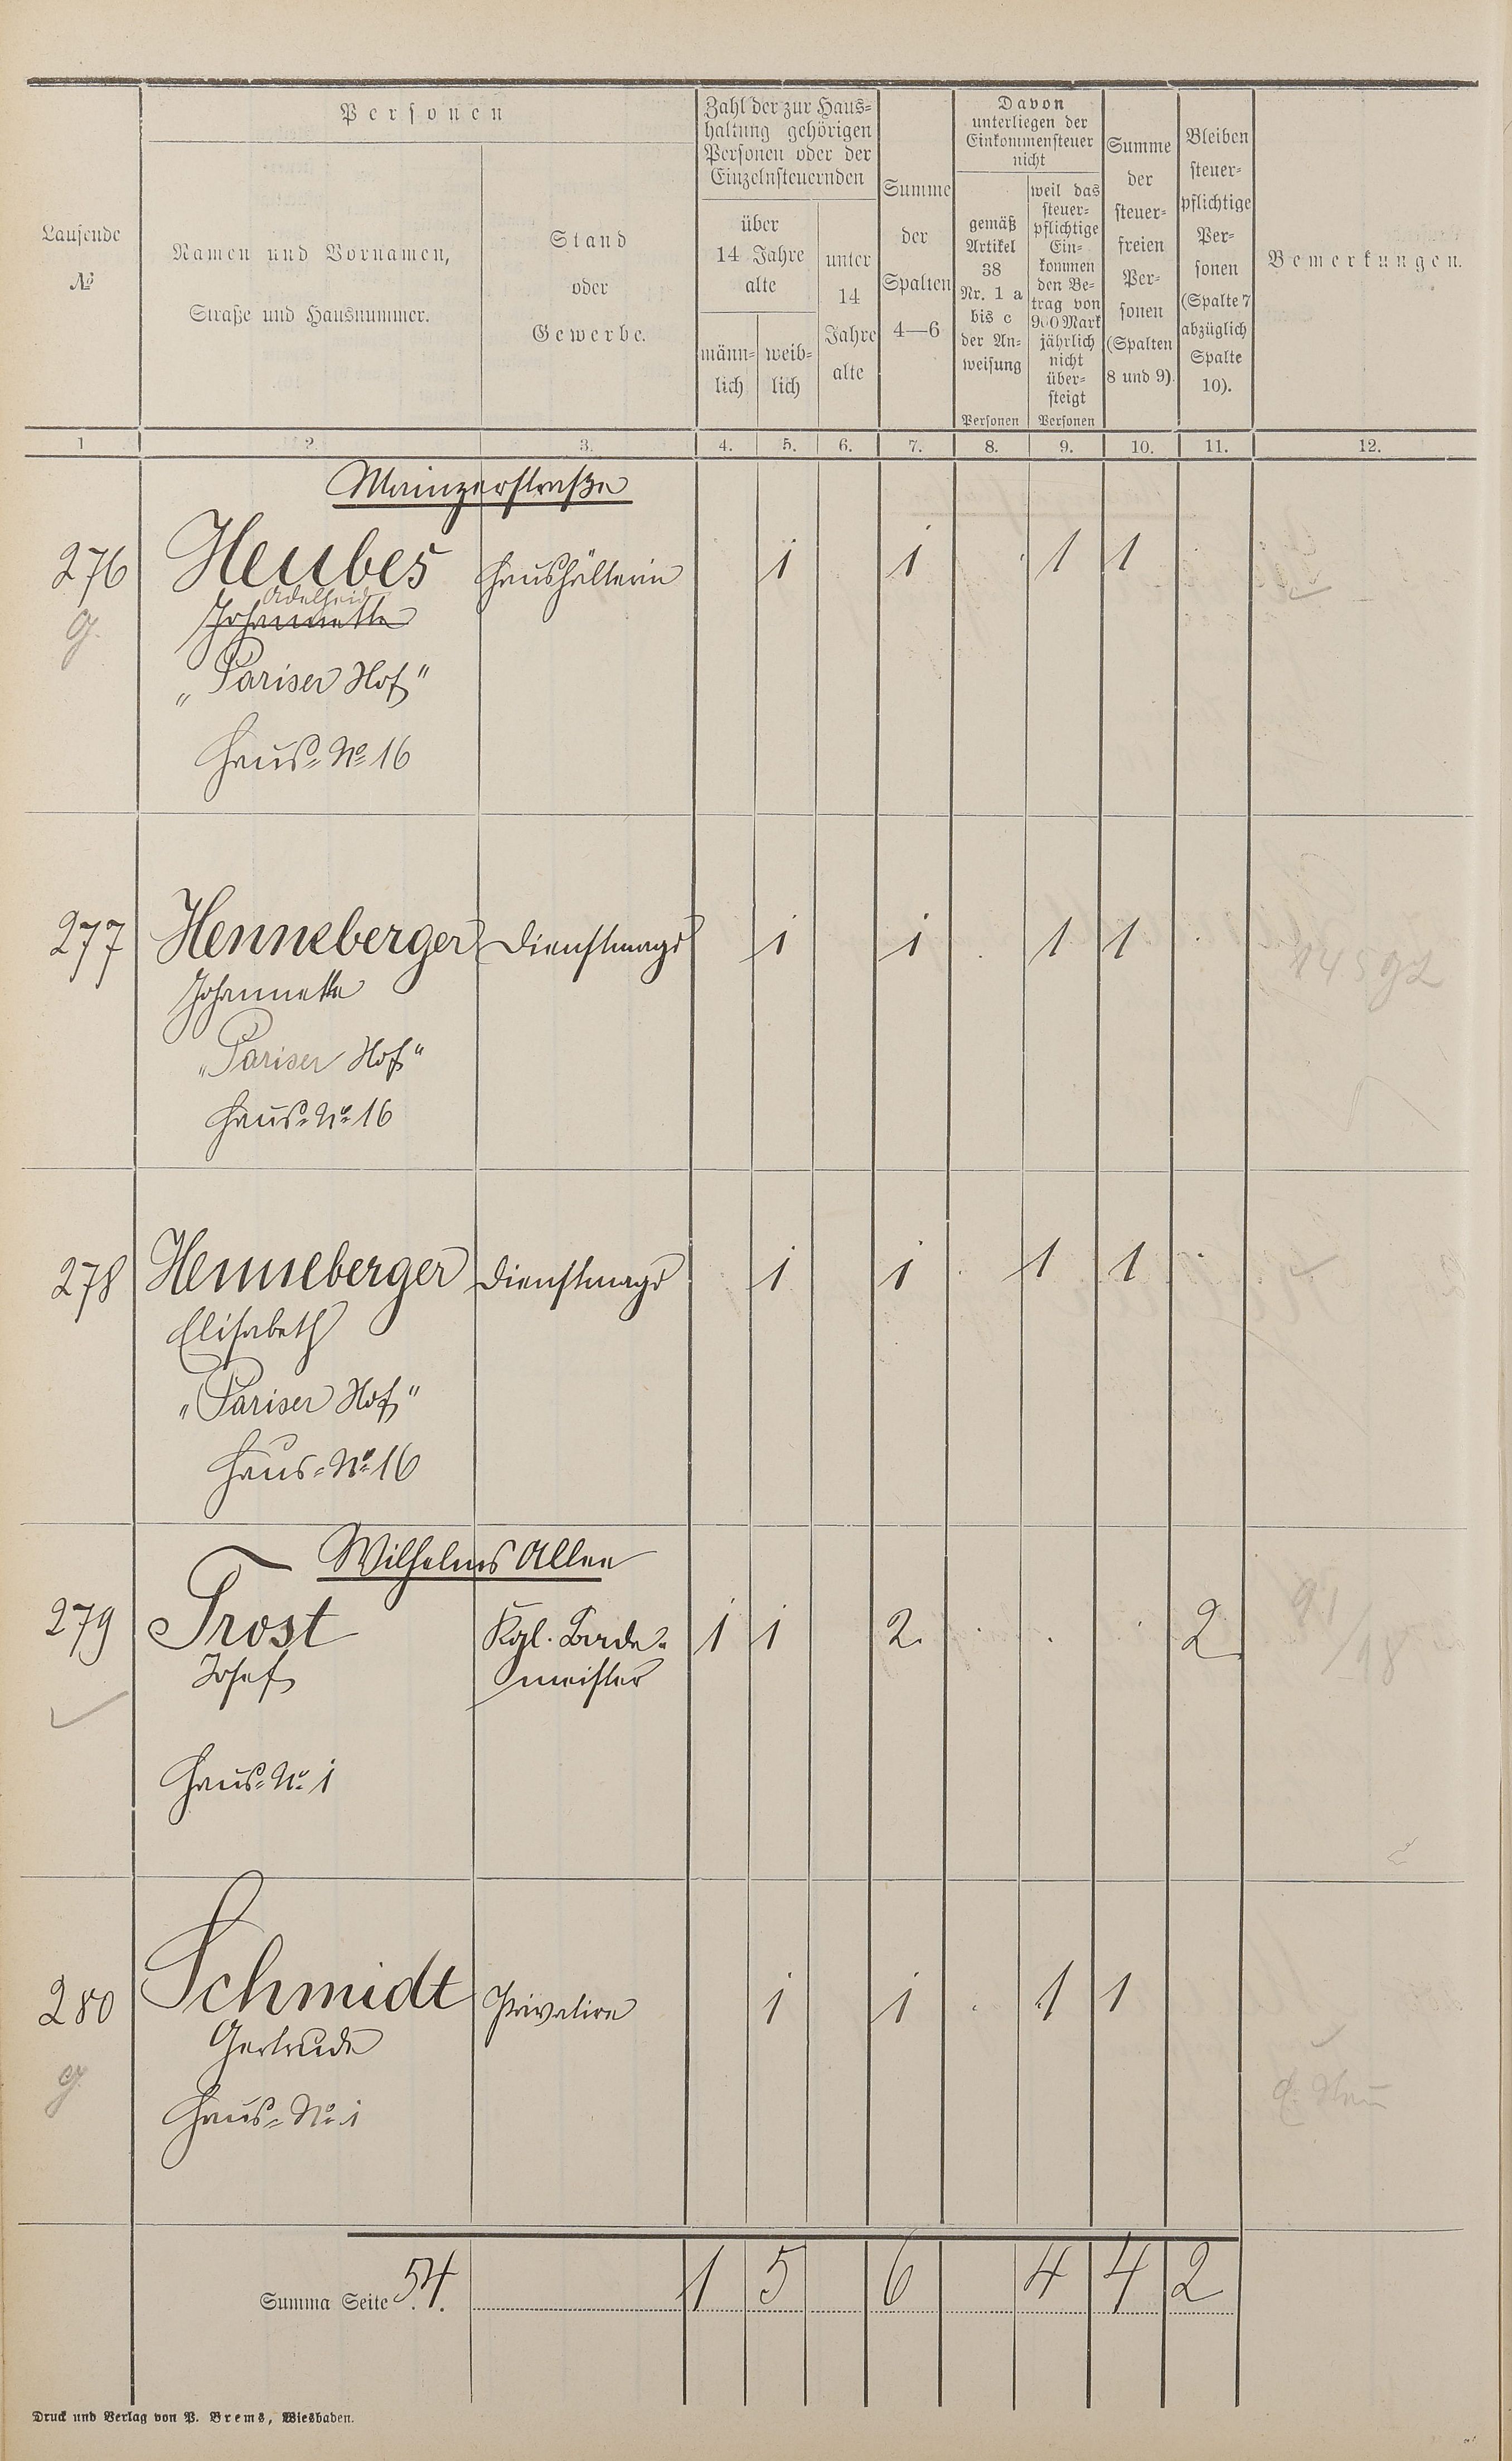 Personen
Zahl der zur Haus-
haltung gehörigen
Personen oder der
Einzelnsteuernden
Davon
unterliegen der
Einkommensteuer
nicht
Laufende
№
Namen und Vornamen,
Straße und Hausnummer.
Stand
oder
Gewerbe.
über
14 Jahre
alte
männ-
lich
weib-
lich
unter
14
Jahre
alte
Summe
der
Spalten
4—6
gemäß
Artikel
38
Nr. 1 a
bis c
der An-
weisung
Personen
weil das
steuer-
pflichtige
Ein-
kommen
den Be-
trag von
900 Mark
jährlich
nicht
über-
steigt
Personen
Summe
der
steuer-
freien
Per-
sonen
(Spalten
8 und 9).
Bleiben
steuer-
pflichtige
Per-
sonen
(Spalte 7
abzüglich
Spalte
10).
Bemerkungen.
1 2. 3. 4. 5. 6. 7. 8. 9. 10. 11. 12.
Mainzerstraße
276 Heubes Haushälterin 1 1 1 1
Adelheid
g. Johannette
„Pariser Hof"
Haus-No 16
277 Henneberger Dienstmagd 1 1 . 1 1 .
Johannette
„Pariser Hof"
Haus-No 16
278 Henneberger Dienstmagd 1 1 . 1 1 .
Elisabeth
„Pariser Hof"
Haus-No 16
Wilhelms Allee
279 Trost Kgl. Bade- 1 1 2. . . . 2
Josef meister
Haus-No 1
280 Schmidt Privatiere 1 1 . 1 1
Gertrude
g. Haus-No 1
Summa Seite 54. 1 5 6 4 4 2
Druck und Verlag von P. Brems, Wiesbaden.